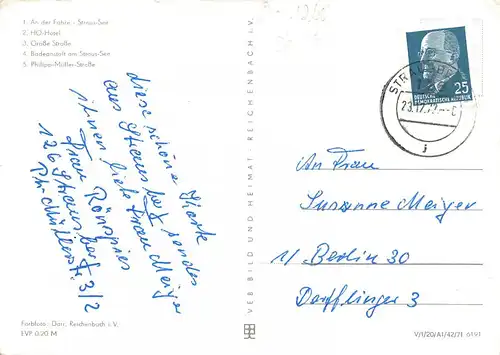 1. An der Fähre - Straus-See
2. HO-Hotel
3. Große Straße
4. Badeanstalt am Straus-See
5. Philipp-Müller-Straße
diese schöne Karte
aus Strausberg sendet
ihnen liebe Frau Meiyer
Frau Rönspies
126 Strausberg
Ph. Müllerstr 3/2
Farbfotos: Darr, Reichenbach i. V.
EVP 0,20 M
VEB BILD UND HEIMAT · REICHENBACH i. V.
STRAUSBERG
25
DEUTSCHE
DEMOKRATISCHE REPUBLIK
An Frau
Susanne Meiyer
1/ Berlin 30
Dorfflinger 3
V/1/20/A1/42/71 6191